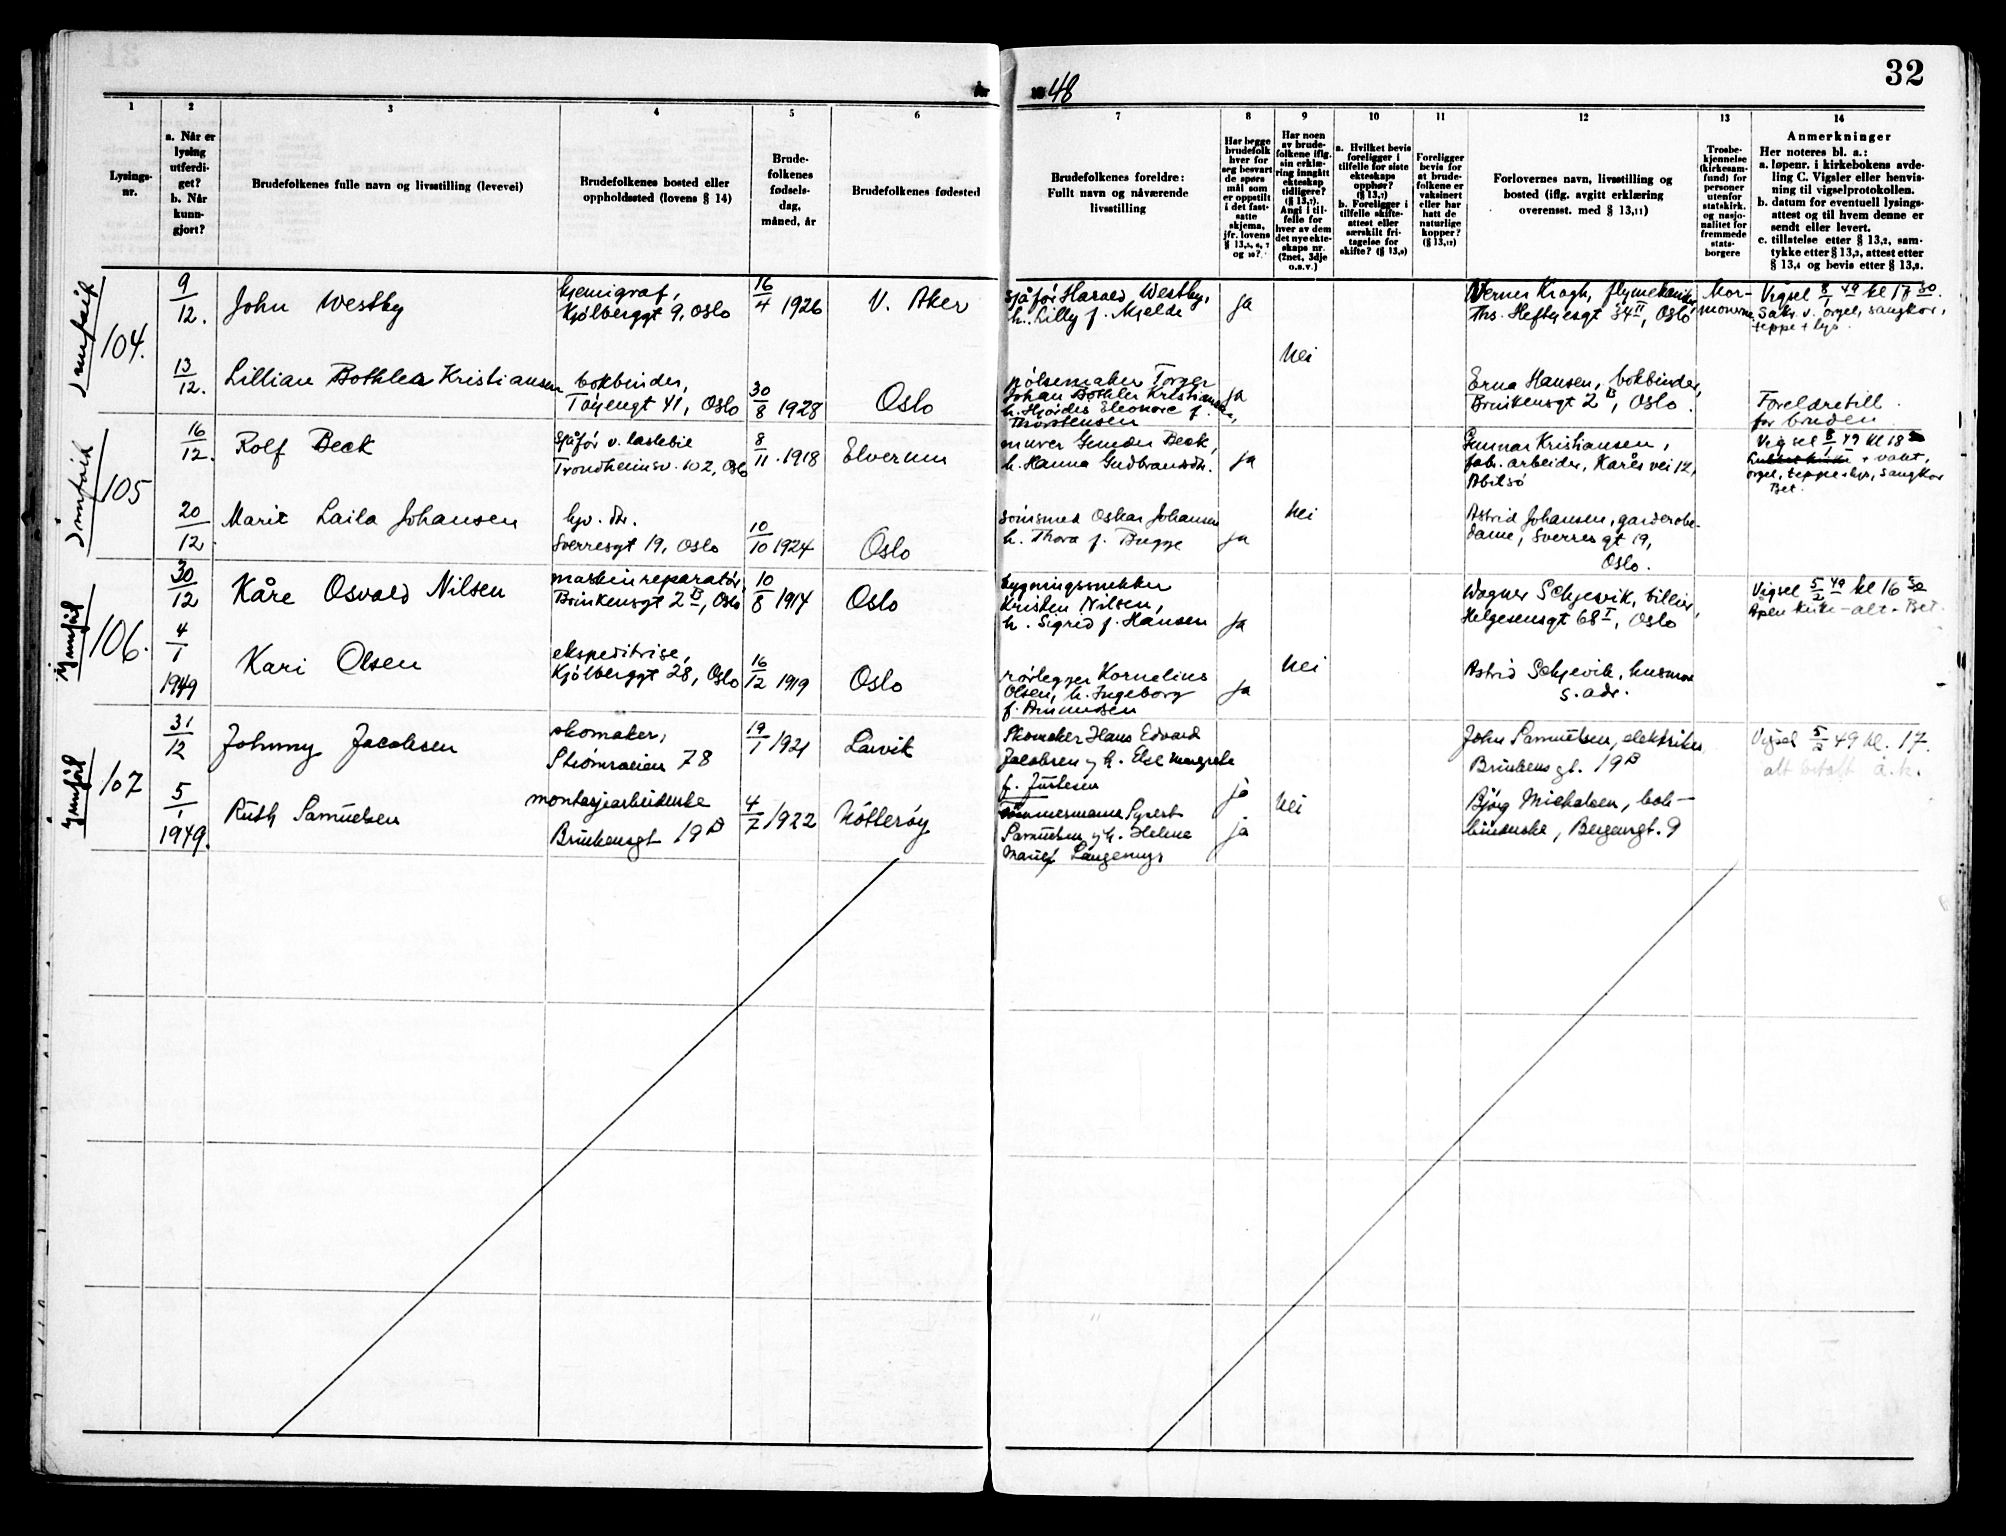 32
År 1948
1
2
3
4
5
6
7
8
9
10
11
12
13
14
Lysings-
nr.
a. Når er
lysing
utferdi-
get?
b. Når
kunn-
gjort?
Brudefolkenes fulle navn og livsstilling (levevei)
Brudefolkenes bosted eller
oppholdssted (lovens § 14)
Brude-
folkenes
fødsels-
dag,
måned, år
Brudefolkenes fødested
Brudefolkenes foreldre:
Fullt navn og nåværende
livsstilling
Har begge
brudefolk
hver for
seg besvart
de spørs
mål som
er oppstilt
i det fast-
satte
skjema,
jfr. lovens
§ 13,5, 6, 7
og 10?
Har noen
av brude-
folkene iflg.
sin erklæ-
ring inngått
ekteskap
tidligere?
(§ 13,7).
Angi i til-
felle for
hver av dem
det nye ekte-
skaps nr.
(2net, 3dje
o.s.v.)
a. Hvilket bevis
foreligger i
tilfelle for siste
ekteskaps
opphør?
(§ 13,7)
b. Foreligger i
tilfelle skifte-
attest eller
særskilt fri-
tagelse for
skifte? (§ 13,9)
Foreligger
bevis for
at brude-
folkene er
vaksinert
eller har
hatt de
naturlige
kopper?
(§ 13,12)
Forlovernes navn, livsstilling og
bosted (iflg. avgitt erklæring
overensst. med § 13,11)
Trosbe-
kjennelse
(kirkesam-
fund) for
personer
utenfor
statskirk.
og nasjo-
nalitet for
fremmede
stats-
borgere
Anmerkninger
Her noteres bl. a.:
a. løpenr. i kirkebokens avde-
ling C. Vigsler eller henvis-
ning til vigselprotokollen.
b. datum for eventuell lysings-
attest og til hvem denne er
sendt eller levert.
c. tillatelse etter § 13,2, sam-
tykke etter § 13,3, attest etter
§ 13,4 og bevis etter § 13,8.
104.
9/12.
John Westby
kjemigraf,
Kjølberggt 9, Oslo
16/4 1926
V. Aker
sjåfør Harald Westby,
h. Lilly f. Mjelde
ja
Werner Krogh, flymekaniker,
Ths. Heftyesgt 34 II, Oslo
Mor-
monerne
Vigsel 8/1 49 kl 17 30.
Sakr. v. orgel, sangkor,
teppe + lys.
Nei
13/12.
Lillian Bothlea Kristiansen
bokbinder,
Tøyengt 41, Oslo
30/8 1928
Oslo
pølsemaker Torger
Johan Bothler Kristiansen,
h. Hjørdis Eleonore f.
Thorstensen
ja
Erna Hansen, bokbinder,
Brinkensgt 2 B, Oslo.
Foreldretill.
for bruden
105
16/12.
Rolf Beck
sjåfør v. lastebil
Trondheimsv. 102, Oslo
8/11 1918
Elverum
murer Gunder Beck,
h. Hanna Gudbrandsdr.
ja
Gunnar Kristiansen,
fabr. arbeider, Kåres vei 12,
Abilsø
Vigsel 8/1 49 kl 18
+ vakt,
orgel, teppe + lys, sangkor
Bet.
20/12.
Marit Laila Johansen
hjv. dr.
Sverresgt 19, Oslo
10/10 1924
Oslo
Oskar Johansen
h. Thora f. Bugge
ja
Nei
Astrid Johansen, garderobe-
dame, Sverres gt 19,
Oslo.
106.
30/12
Kåre Osvald Nilsen
maskinreparatør
Brinkensgt 2 B, Oslo
10/8 1914
Oslo
bygningssnekker
Kristen Nilsen,
h. Sigrid f. Hansen
ja
Wagner Schjesvik,
Helgesensgt 68 I, Oslo
Vigsel 5/2 49 kl 16 30
Åpen kirke - alt - Bet.
4/1 1949
Kari Olsen
ekspeditrise,
Kjølberggt 28, Oslo
16/12 1919
Oslo
rørlegger Kornelius
Olsen, h. Ingeborg
f. Amundsen
ja
Nei
Astrid Schjesvik, husmor
s. adr.
107
31/12
Johnny Jacobsen
skomaker,
Strømveien 78
19/1 1921
Larvik
Skomaker Hans Edvard
Jacobsen og h. Else Margrete
f. Justesen
ja
John Samuelsen, elektriker
Brinkens gt. 19 B
Vigsel 5/2 49 kl. 17.
alt betalt
5/1 1949.
Ruth Samuelsen
montasjearbeiderske
Brinkensgt 19 B
4/7 1922
Nøtterøy
Tømmermann Syvert
Samuelsen og h. Helene
Marie f. Langemyr
ja
Nei
Bjørg Michalsen, bok-
binderske, Bergensgt. 9